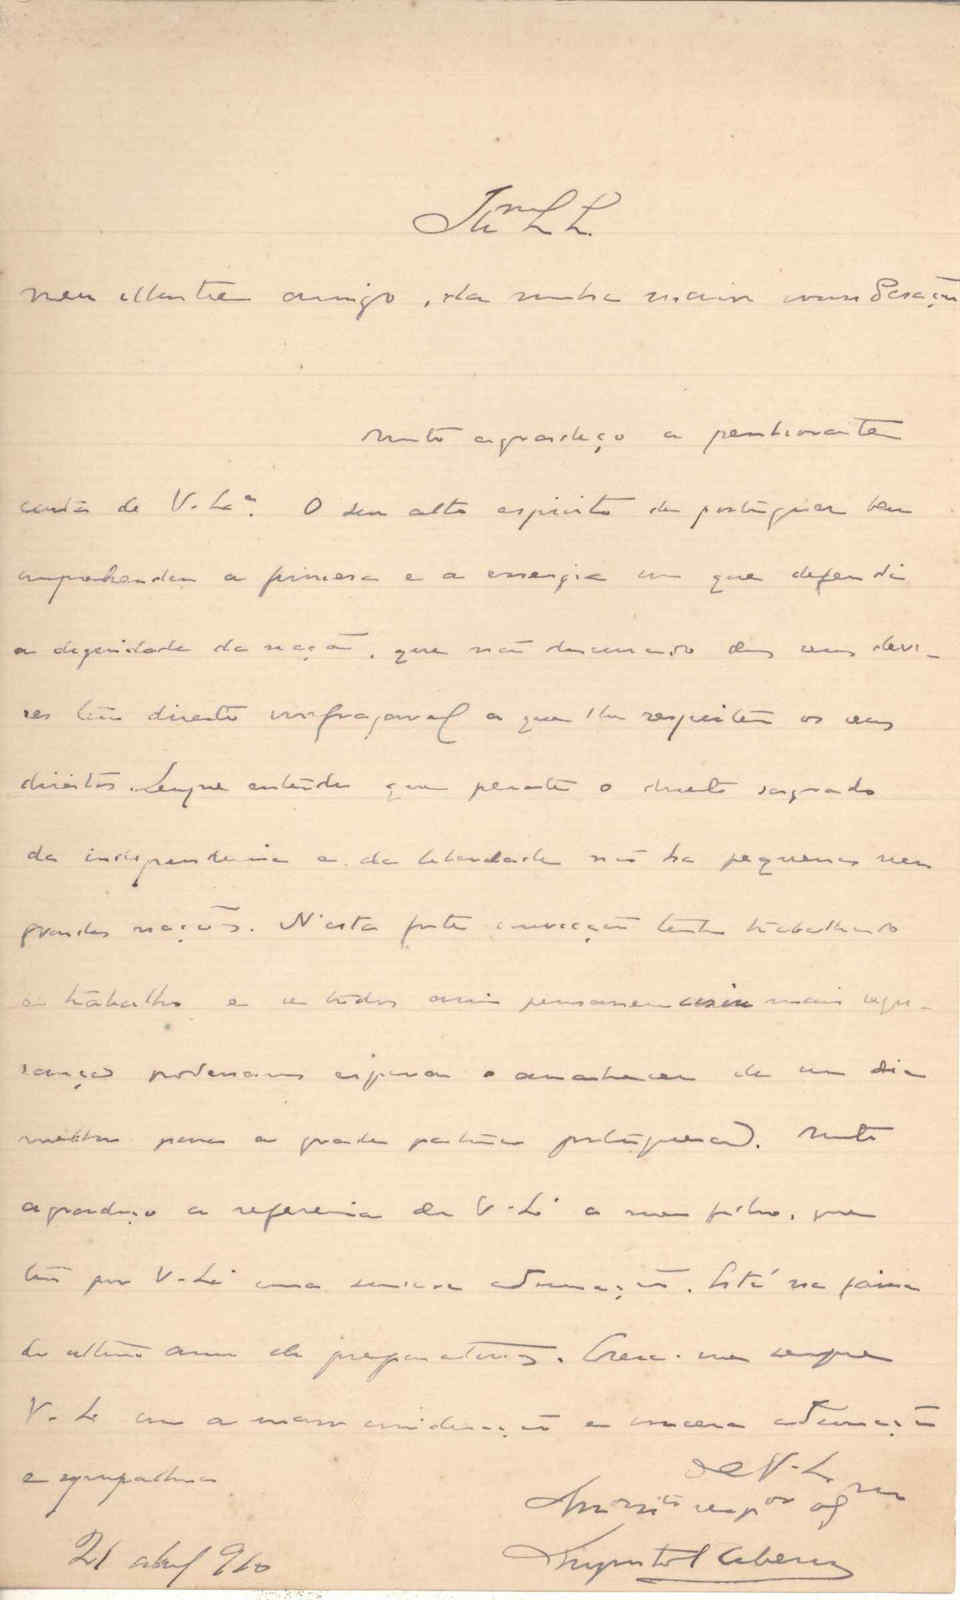 Meu illustre amigo, da minha maior consideração
Muito agradeço a penhorante
carta de V. Exª. O seu alto espirito de portuguez bem
comprehendeu a firmesa e a energia com que defendi
a dignidade da nação, que não descurando dos seus deve-
res tem direito a que lhe respeitem os seus
direitos. Sempre entendi que perante o direito sagrado
da independencia e da liberdade não ha pequenas nem
grandes nações. N'esta forte convicção tenho trabalhado
e trabalho e se todos assim pensassem com mais segu-
rança poderiamos esperar o amanhecer de um dia
melhor para a grande patria portuguesa. Muito
agradeço a referencia de V. Exª a meu filho, que
tem por V. Exª uma sincera admiração. Está na
do ultimo anno de preparatorios. Creia-me sempre
V. Exª com a maior consideração e sincera admiração
e sympathia
De V. Exª
21 abril 910